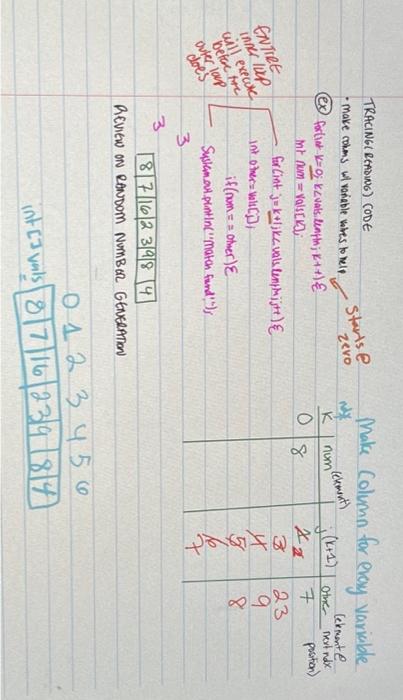 TRACING (READING) CODE
• make columns w/ variable values to help
Starts @
zero
ex for(int k=0; k<vals.length; k++){
int num = vals[k];
for(int j=k+1; k<vals.length; j++){
int other = vals[j];
if(num == other){
System.out.println("match found!");
ENTIRE
inner loop
will execute
before the
outer loop
does
3
3
8 7 16 2 3 9 8 4
REVIEW ON RANDOM NUMBER GENERATION
0 1 2 3 4 5 6
int [] vals 8 7 16 23 9 8 4
Make Column for every variable
ndx
(element)
(element @
next ndx
position)
k num j (k+1) other
0 8 1 7
2
3 23
4 9
5 8
6
7